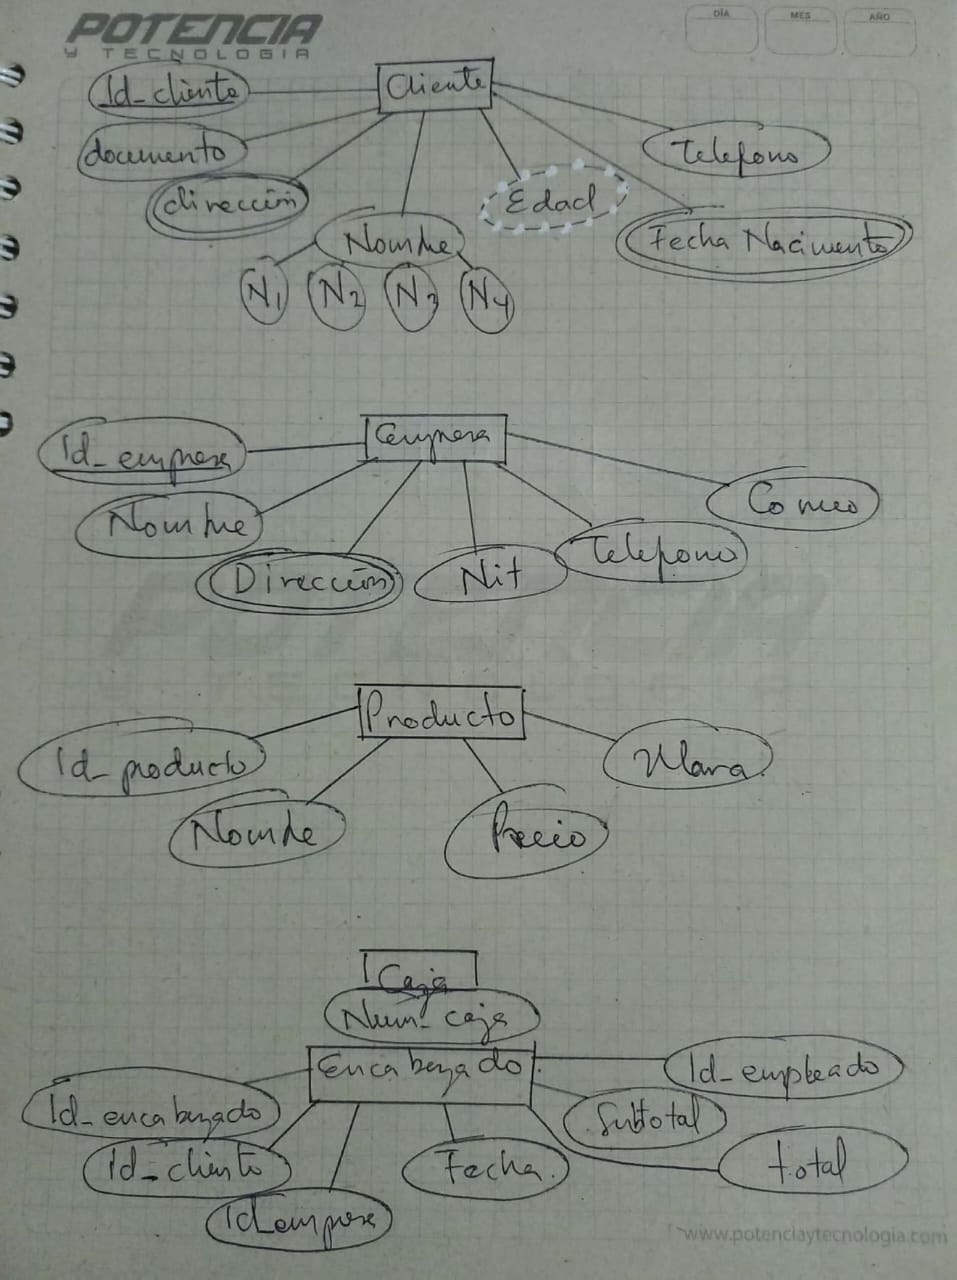 POTENCIA
Y TECNOLOGIA
DÍA MES AÑO
Cliente
Id_cliente
documento
dirección
Nombre
Edad
Telefono
Fecha Nacimento
N1 N2 N3 N4
Empresa
Id_empresa
Nombre
Dirección
Nit
Telefono
Correo
Producto
Id_producto
Nombre
Precio
Marca.
Caja
Num_caja
Encabezado
Id_encabezado
Id_cliente
Id_empresa
Fecha.
Subtotal
total
Id_empleado
www.potenciaytecnologia.com